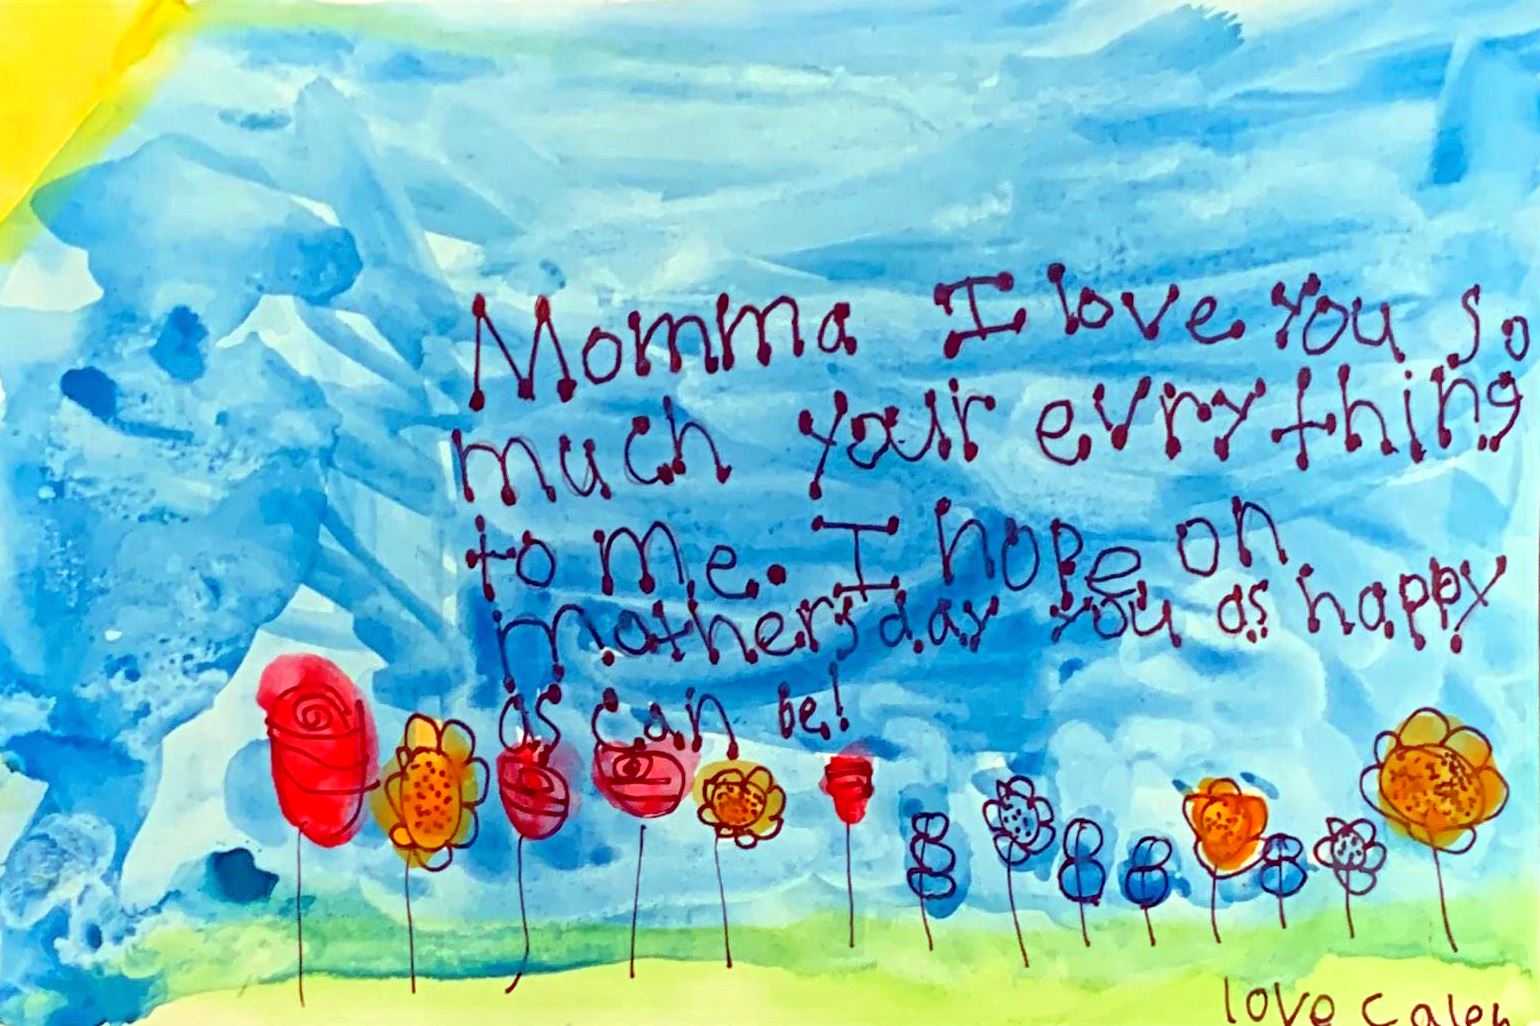 Momma I love you so
much your evrything
to me. I hope on
mothersday you as happy
as can be!
love Calen